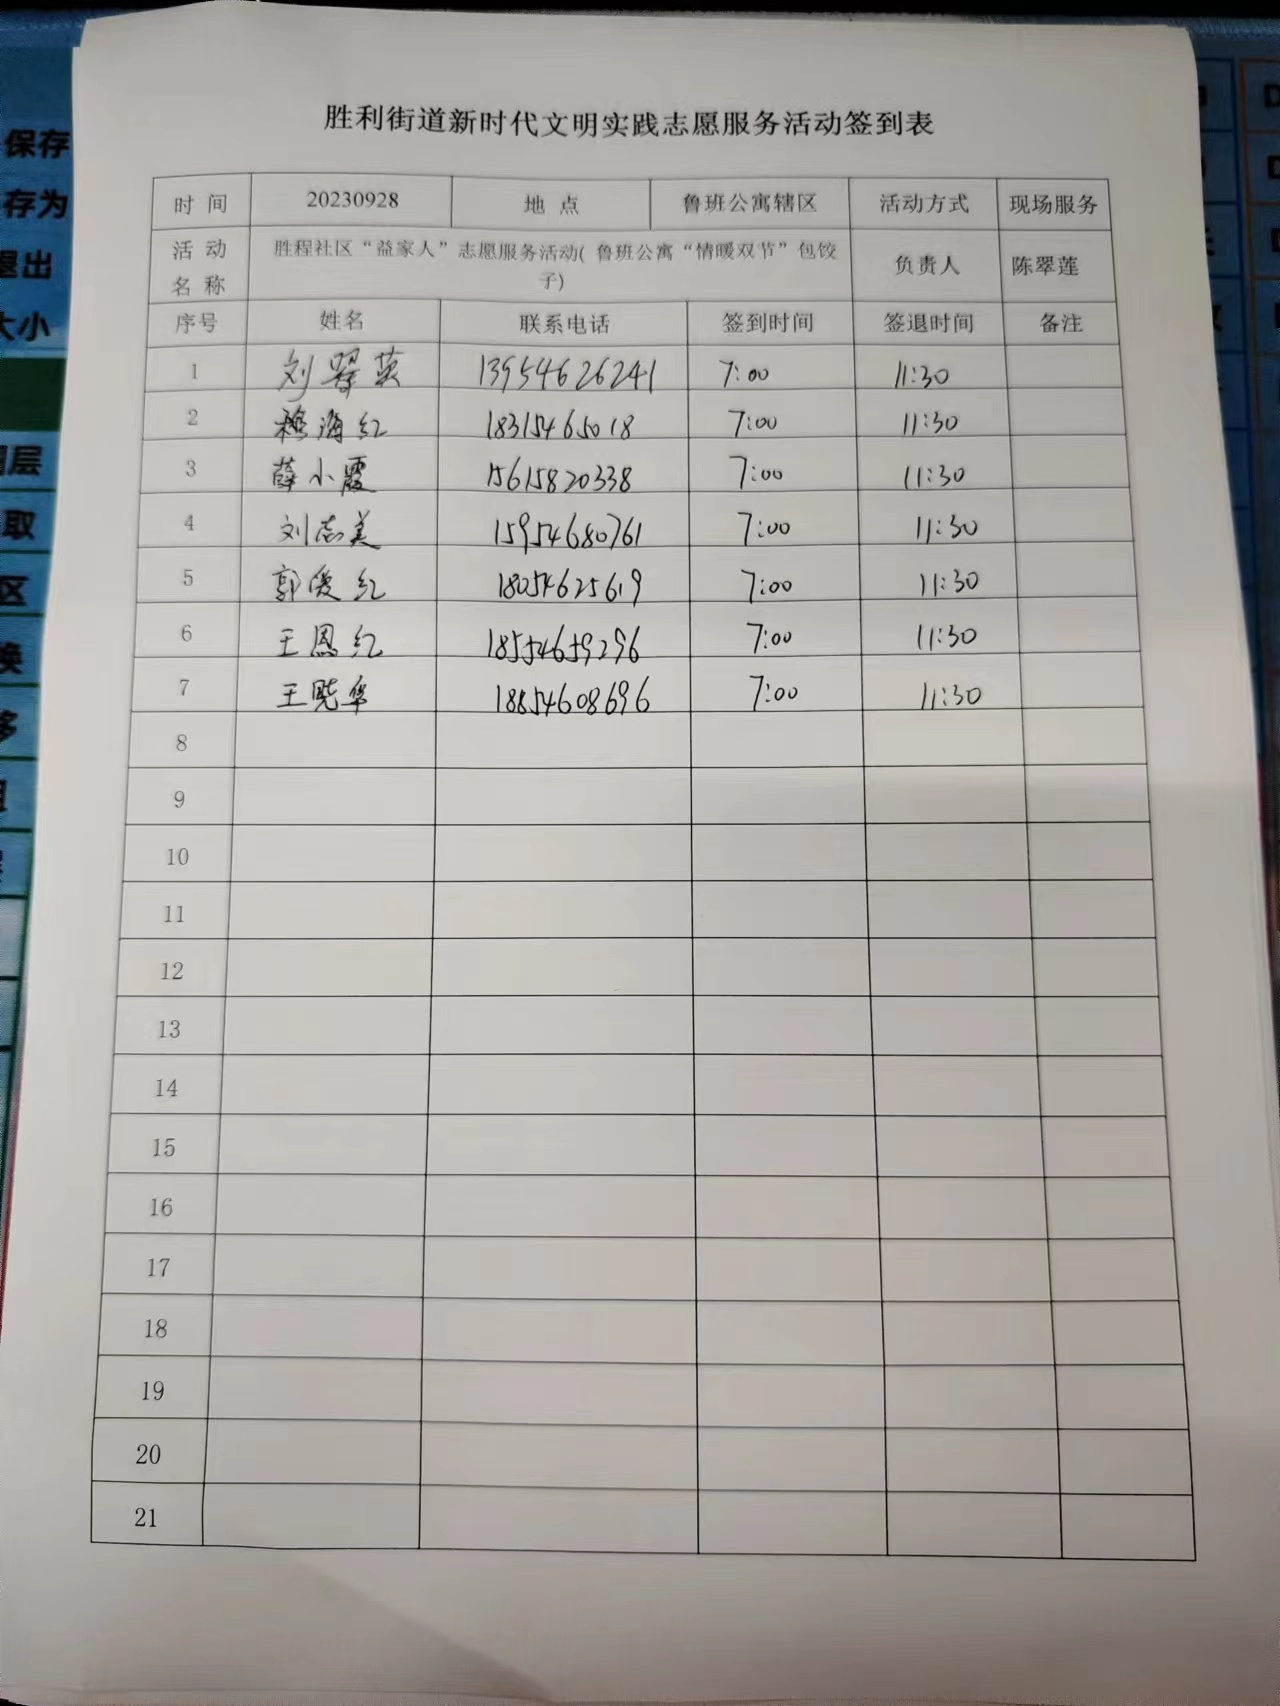 胜利街道新时代文明实践志愿服务活动签到表
时 间 20230928 地 点 鲁班公寓辖区 活动方式 现场服务
活 动 名 称 胜程社区“益家人”志愿服务活动( 鲁班公寓“情暖双节”包饺
子) 负责人 陈翠莲
序号 姓名 联系电话 签到时间 签退时间 备注
1 刘翠英 13954626241 7:00 11:30
2 穆海红 18315465018 7:00 11:30
3 薛小霞 15615820338 7:00 11:30
4 刘志美 15954680761 7:00 11:30
5 郭爱红 18054625619 7:00 11:30
6 王恩红 18554659296 7:00 11:30
7 王晓华 18854608696 7:00 11:30
8
9
10
11
12
13
14
15
16
17
18
19
20
21
保存
存为
退出
大小
图层
取
区
换
移